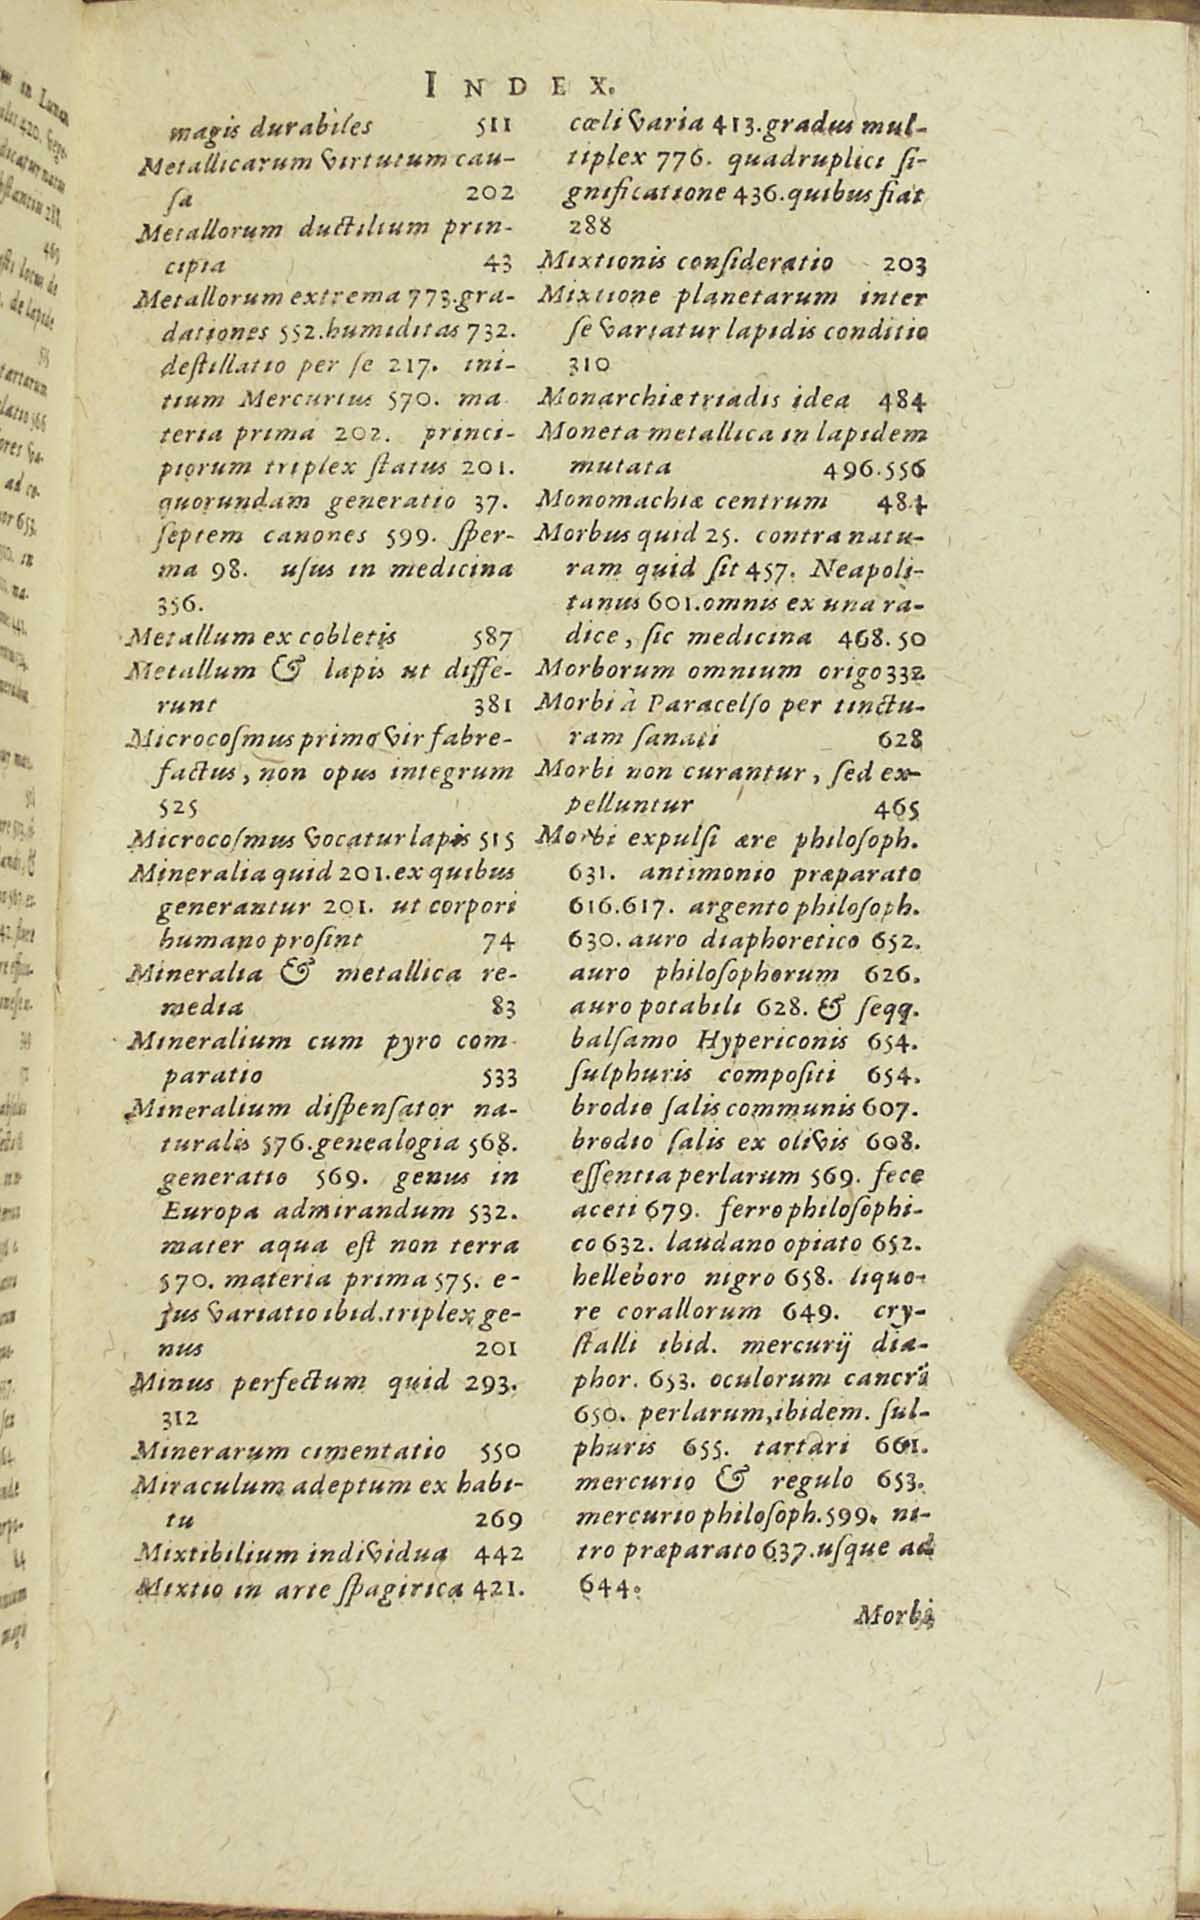 INDEX.
magis durabiles 511
Metallicarum virtutum cau-
sa 202
Metallorum ductilium prin-
cipia 43
Metallorum extrema 773. gra-
dationes 552. humiditas 732.
destillatio per se 217. ini-
tium Mercurius 570. ma
teria prima 202. princi-
piorum triplex status 201.
quorundam generatio 37.
septem canones 599. sper-
ma 98. usus in medicina
356.
Metallum ex cobletis 587
Metallum & lapis ut diffe-
runt 381
Microcosmus primo vir fabre-
factus, non opus integrum
525
Microcosmus vocatur lapis 515
Mineralia quid 201. ex quibus
generantur 201. ut corpori
humano prosint 74
Mineralia & metallica re-
media 83
Mineralium cum pyro com
paratio 533
Mineralium dispensator na-
turalis 576. genealogia 568.
generatio 569. genus in
Europa admirandum 532.
mater aqua est non terra
570. materia prima 575. e-
jus variatio ibid. triplex ge-
nus 201
Minus perfectum quid 293.
312
Minerarum cimentatio 550
Miraculum adeptum ex habi-
tu 269
Mixtibilium individua 442
Mixtio in arte spagirica 421.
cœli varia 413. gradus mul-
tiplex 776. quadruplici si-
gnificatione 436. quibus fiat
288
Mixtionis consideratio 203
Mixtione planetarum inter
se variatur lapidis conditio
310
Monarchiæ triadis idea 484
Moneta metallica in lapidem
mutata 496.556
Monomachiæ centrum 484
Morbus quid 25. contra natu-
ram quid sit 457. Neapoli-
tanus 601. omnis ex una ra-
dice, sic medicina 468.50
Morborum omnium origo 332
Morbi à Paracelso per tinctu-
ram sanati 628
Morbi non curantur, sed ex-
pelluntur 465
Morbi expulsi ære philosoph.
631. antimonio præparato
616.617. argento philosoph.
630. auro diaphoretico 652.
auro philosophorum 626.
auro potabili 628. & seqq.
balsamo Hypericonis 654.
sulphuris compositi 654.
brodio salis communis 607.
brodio salis ex olivis 608.
essentia perlarum 569. fece
aceti 679. ferro philosophi-
co 632. laudano opiato 652.
helleboro nigro 658. liquo-
re corallorum 649. cry-
stalli ibid. mercurij dia-
phor. 653. oculorum cancri
650. perlarum, ibidem. sul-
phuris 655. tartari 661.
mercurio & regulo 653.
mercurio philosoph. 599. ni-
tro præparato 637. usque ad
644.
Morbi